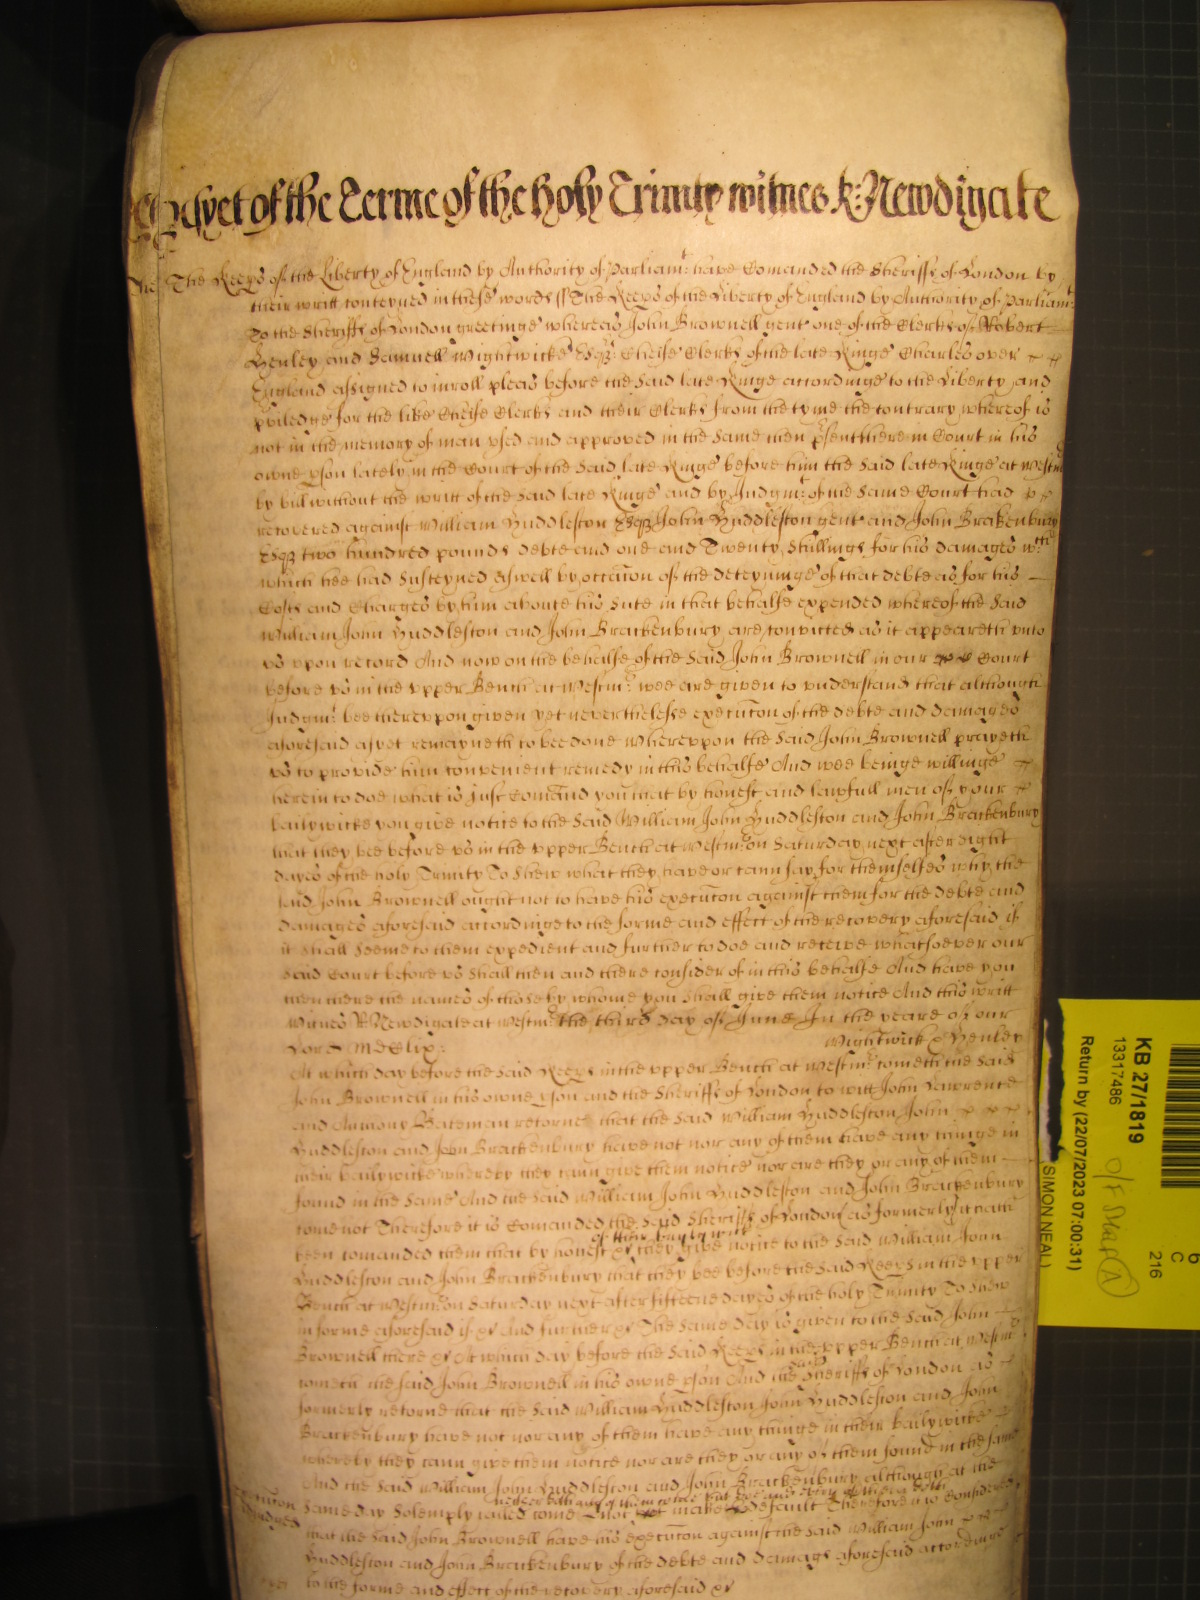 Asyet of the Terme of the holy Trinity witnes R: Newdigate
The Keeps of the Liberty of England by Authority of Parliamt: have Comanded the Sheriffs of London by
their writt conteyned in these words ss The Keeps of the Liberty of England by Authority of Parliamt:
To the Sheriffs of London greetinge whereas John Brownell gent one of the Clerks of Robert
Henley and Samuell Wightwicke Esqs: Cheife Clerks of the late Kinge Charles over
England assigned to inroll pleas before the said late Kinge accordinge to the Liberty and
priledges for the like Cheife Clerks and their Clerks from the tyme the contrary whereof is
not in the memory of man vsed and approved in the same then psent there in Court in his
owne pson lately in the Court of the said late Kinge before him the said late Kinge at Westm
by bill without the writt of the said late Kinge and by Judgmt: of the same Court had
recovered against William Huddleston Esqr John Huddleston gent and John Brakenbury
Esqr two hundred pounds debte and one and Twenty Shillings for his damages wch
which hee had susteyned aswell by occacon of the deteyninge of that debte as for his
Costs and Charges by him aboute his Sute in that behalfe expended whereof the said
William John Huddleston and John Brackenbury are convicted as it appeareth vnto
vs vpon record And now on the behalfe of the said John Brownell in our Court
before vs in the vpper Bench at Westmr: wee are given to vnderstand that although
Judgmt: bee therevpon given yet neverthelesse execucon of the debte and damages
aforesaid as yet remayneth to bee done Wherevpon the said John Brownell prayeth
vs to provide him convenient remedy in this behalfe And wee beinge willinge
herein to doe what is just Comand you that by honest and lawfull men of your
bailywicke you give notice to the said William John Huddleston and John Brackenbury
that they bee before vs in the vpper Bench at Westmr: on Saturday next after eight
dayes of the holy Trinity To shew what they have or cann say for themselfes why the
said John Brownell ought not to have his execucon against them for the debte and
damages aforesaid accordinge to the forme and effect of the recovery aforesaid if
it shall seeme to them expedient and further to doe and receive whatsoever our
said Court before vs shall then and there consider of in this behalfe And have you
then there the names of those by whome you shall give them notice And this writt
Witnes R Newdigate at Westmr the third day of June In the yeare of our
Lord MDClix:
Wightwick & Henley
At which day before the said Keeps in the vpper Bench at Westmr: cometh the said
John Brownell in his owne pson and the Sheriffs of London to witt John Lawrence
and Anthony Bateman retorne that the said William Huddleston John
Huddleston and John Brackenbury have not nor any of them have any thinge in
their bailywicke whereby they cann give them notice nor are they or any of them
found in the same And the said William John Huddleston and John Brackenbury
come not Therefore it is Comanded the said Sheriffs of London as formerly it hath
of their baylywick
been comanded them that by honest &c they give notice to the said William John
Huddleston and John Brackenbury that they bee before the said Keeps in the vpper
Bench at Westmr: on Saturday next after fifteene dayes of the holy Trinity To shew
in forme aforesaid if &c And further &c The same day is given to the said John
Brownell there &c At which day before the said Keeps in the vpper Bench at Westmr
cometh the said John Brownell in his owne pson And the said Sheriffs of London as
formerly retorne that the said William Huddleston John Huddleston and John
Brackenbury have not nor any of them have any thinge in their bailywicke
whereby they cann give them notice nor are they or any of them found in the same
And the said William John Huddleston and John Brackenbury although at the
same day Solemply called come not make default Therefore it is considered
that the said John Brownell have his execucon against the said William John
Huddleston and John Brackenbury of the debte and damags aforesaid accordinge
to the forme and effect of the recovery aforesaid &c
KB 27/1819
13317486
Return by (22/07/2023 07:00:31)
(SIMON NEAL)
6
C
216